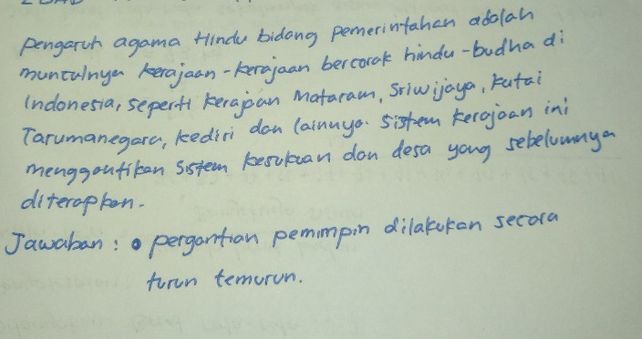 pengaruh agama Hindu bidang pemerintahan adalah
munculnya kerajaan-kerajaan bercorak hindu-budha di
Indonesia, seperti kerajaan Mataram, Sriwijaya, kutai
Tarumanegara, kediri dan lainnya. Sistem kerajaan ini
menggantikan sistem kesukuan dan desa yang sebelumnya
diterapkan.
Jawaban : • pergantian pemimpin dilakukan secara
turun temurun.